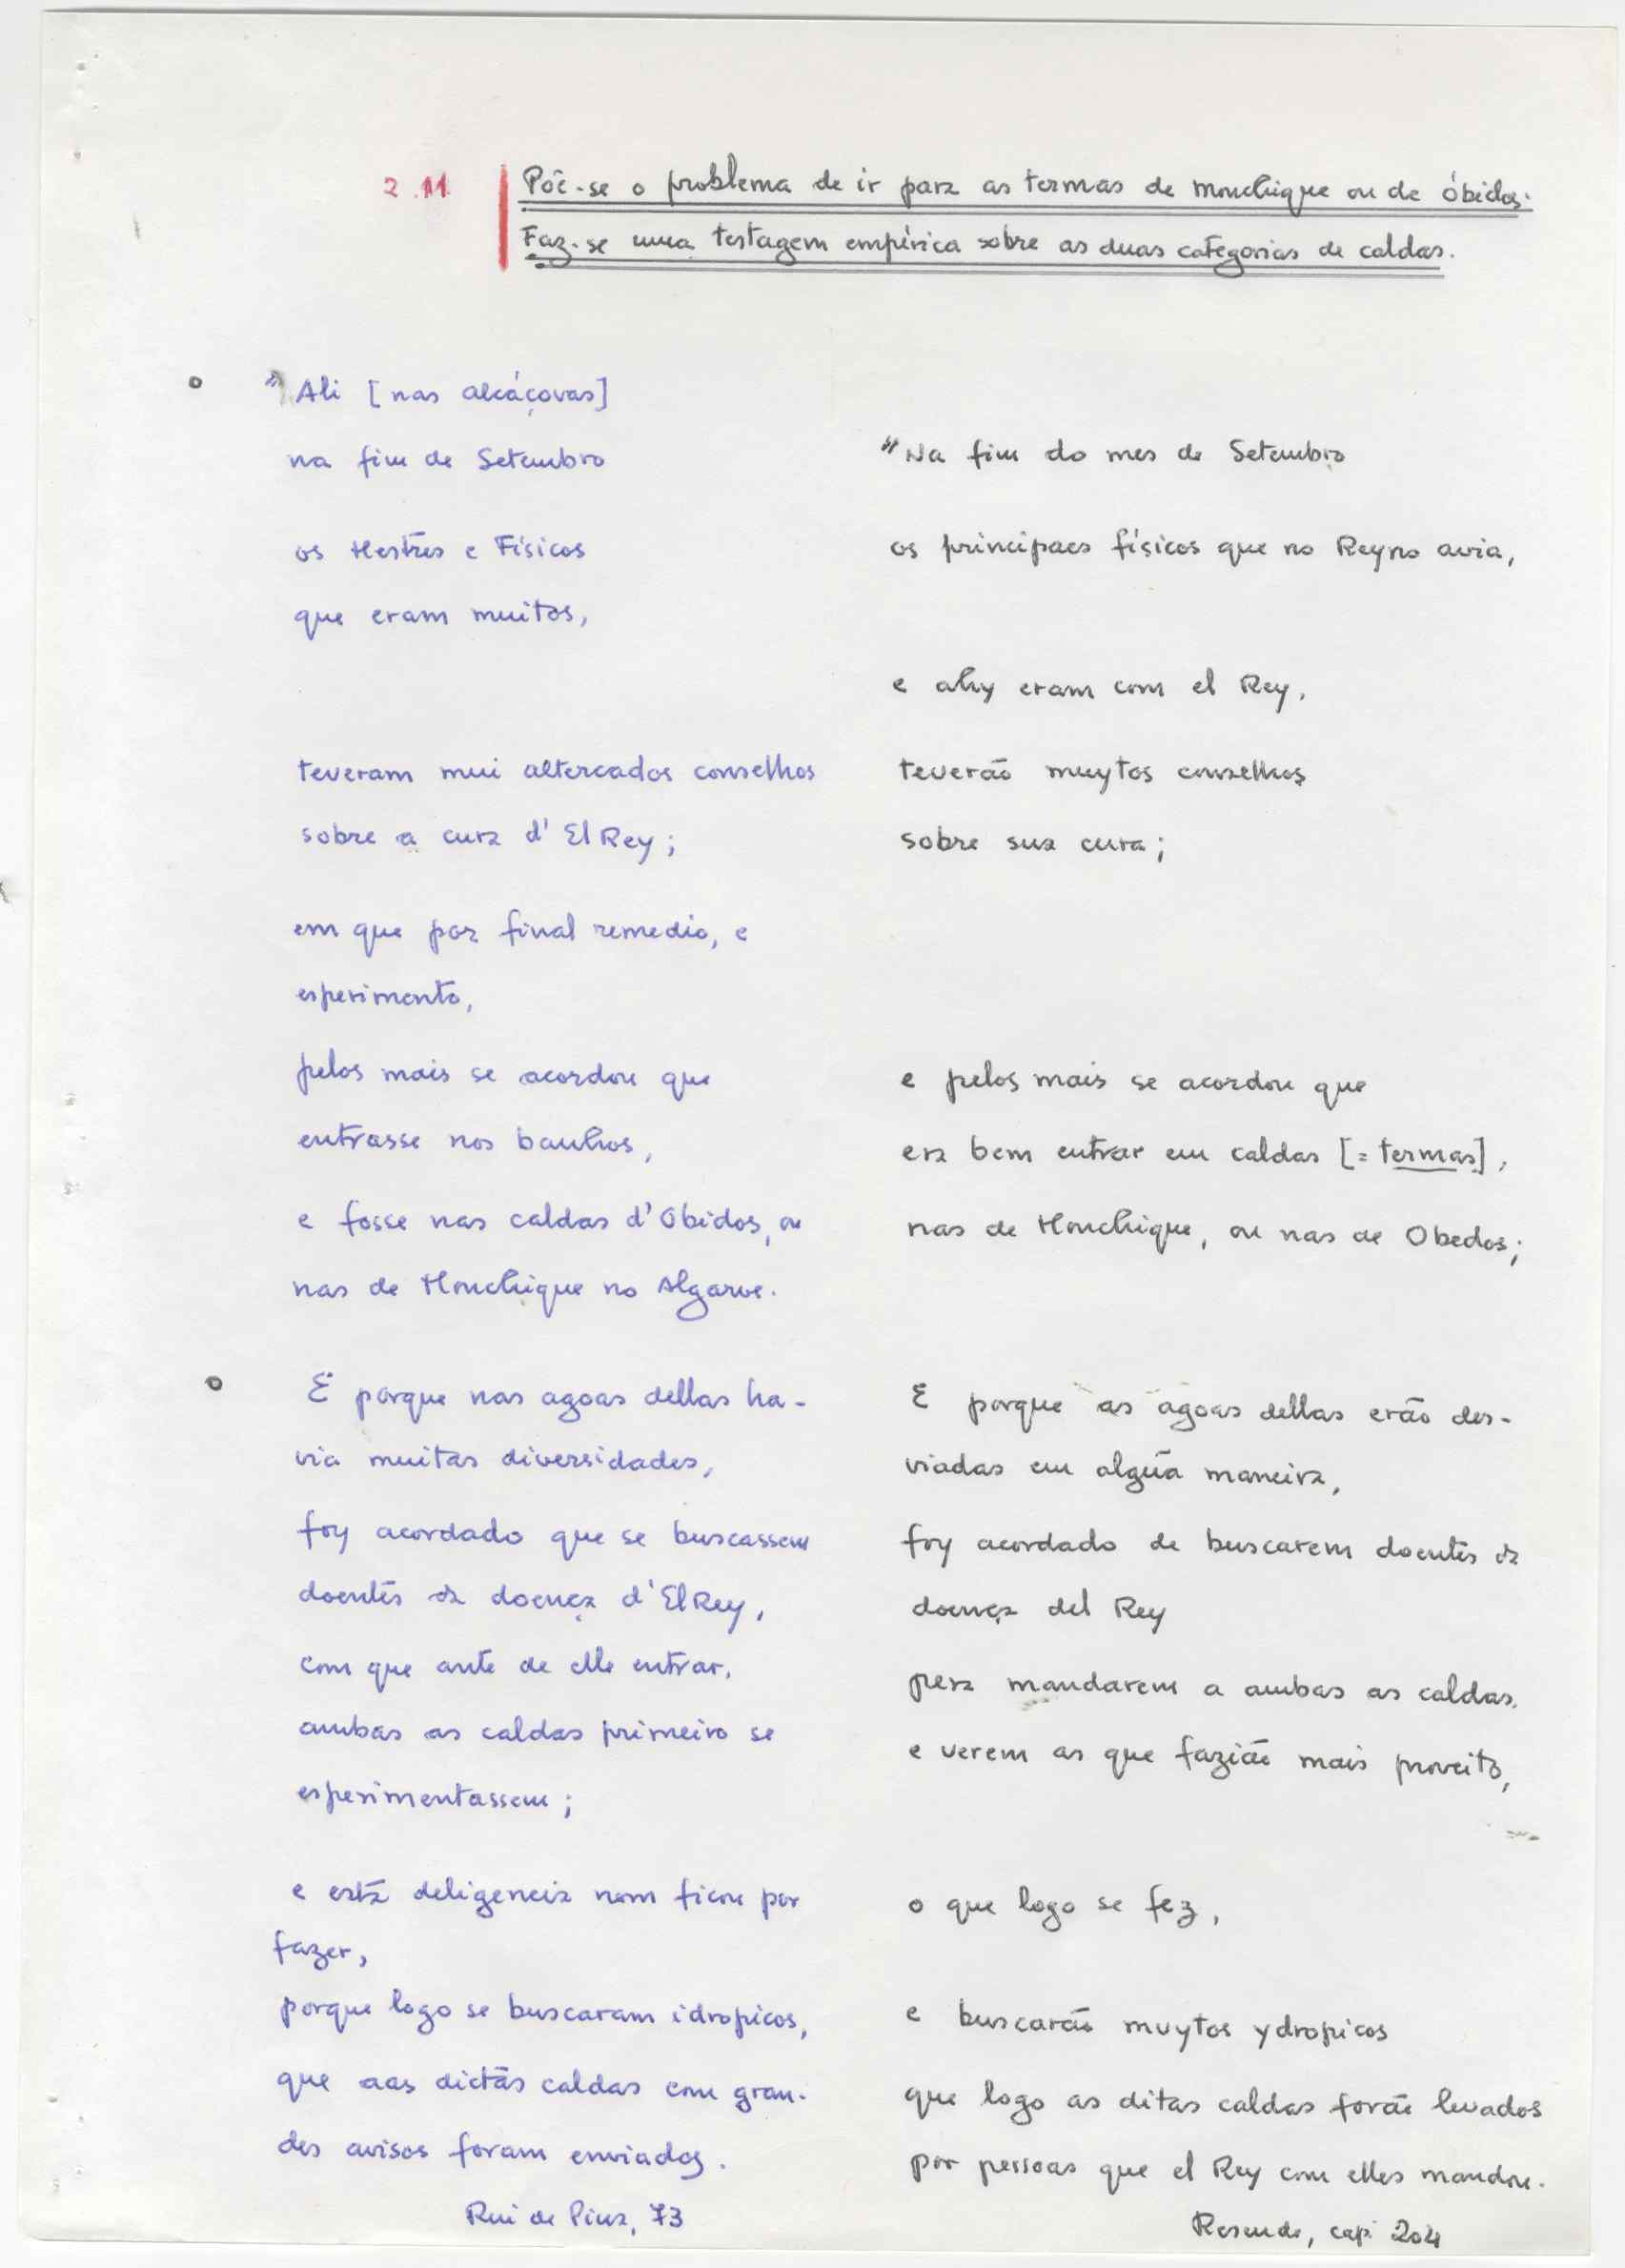 2.11 Põe-se o problema de ir para as termas de Monchique ou de Óbidos.
Faz-se uma testagem empírica sobre as duas categorias de caldas.
"Ali [nas alcáçovas]
na fim de Setembro
os Mestres e Físicos
que eram muitos,
teveram mui altercados conselhos
sobre a cura d'El Rey;
em que por final remedio, e
esperimento,
pelos mais se acordou que
entrasse nos banhos,
e fosse nas caldas d'Obidos, ou
nas de Monchique no Algarve.
E porque nas agoas dellas ha-
via muitas diversidades,
foy acordado que se buscassem
doentes da doença d'El Rey,
com que ante de elle entrar,
ambas as caldas primeiro se
esperimentassem;
e esta deligencia nom ficou por
fazer,
porque logo se buscaram idropicos,
que aas dictas caldas com gran-
des avisos foram enviados.
Rui de Pina, 73
"Na fim do mes de Setembro
os principaes físicos que no Reyno avia,
e ahy eram com el Rey,
teverão muytos conselhos
sobre sua cura;
e pelos mais se acordou que
era bem entrar em caldas [= termas],
nas de Monchique, ou nas de Obedos;
E porque as agoas dellas erão des-
viadas em algũa maneira,
foy acordado de buscarem doentes da
doença del Rey
pera mandarem a ambas as caldas,
e verem as que fazião mais proveito,
o que logo se fez,
e buscarão muytos ydropicos
que logo as ditas caldas forão levados
por pessoas que el Rey com elles mandou.
Resende, cap. 204